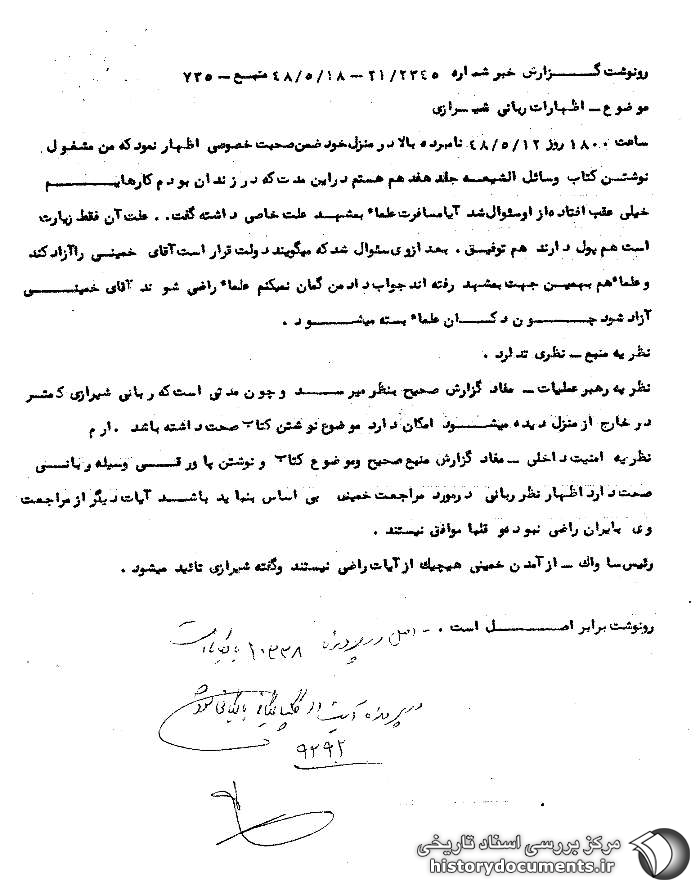 رونوشت گزارش خبر شماره ۲۱/۲۳۴۵ – ۴۸/۵/۱۸ منبع – ۷۳۵
موضوع – اظهارات ربانی شیرازی
ساعت ۱۸۰۰ روز ۴۸/۵/۱۲ نامبرده بالا در منزل خود ضمن صحبت خصوصی اظهار نمود که من مشغول
نوشتن کتاب وسائل الشیعه جلد هفدهم هستم در این مدت که در زندان بودم کارهایم
خیلی عقب افتاده از او سئوال شد آیا مسافرت علماء بمشهد علت خاصی داشته گفت . . علت آن فقط زیارت
است هم پول دارند هم توفیق . بعد از وی سئوال شد که میگویند دولت قرار است آقای خمینی را آزاد کند
و علماء هم بهمین جهت بمشهد رفته اند جواب داد من گمان نمیکنم علماء راضی شوند آقای خمینی
آزاد شود چون دکان علماء بسته میشود .
نظریه منبع – نظری ندارد .
نظریه رهبر عملیات – مفاد گزارش صحیح بنظر میرسد و چون مدتی است که ربانی شیرازی کمتر
در خارج از منزل دیده میشود امکان دارد موضوع نوشتن کتاب صحت داشته باشد . ارم
نظریه امنیت داخلی – مفاد گزارش منبع صحیح و موضوع کتاب و نوشتن پاورقی وسیله ربانی
صحت دارد اظهار نظر ربانی در مورد مراجعت خمینی بی اساس بنماید باشد آیات دیگر از مراجعت
وی بایران راضی نبوده و قلبا موافق نیستند .
رئیس ساواک – از آمدن خمینی هیچیک از آیات راضی نیستند و گفته شیرازی تائید میشود .
رونوشت برابر اصل است . – اصل در پرونده ۱۰۳۳۸ بایگانی است
در پرونده آیت اله گلپایگانی بایگانی شود
۹۲۹۲
مرکز بررسی اسناد تاریخی
historydocuments.ir